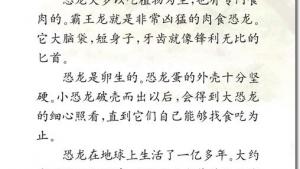 恐龙大多以吃植物为主，也有专门食
肉的。霸王龙就是非常凶猛的肉食恐龙。
它大脑袋，短身子，牙齿就像锋利无比的
匕首。
恐龙是卵生的。恐龙蛋的外壳十分坚
硬。小恐龙破壳而出以后，会得到大恐龙
的细心照看，直到它们自己能够找食吃为
止。
恐龙在地球上生活了一亿多年。大约